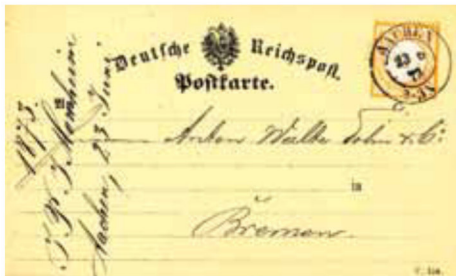 Deutsche Reichspost.
Postkarte.
AACHEN
23 6
73
An
Anton Walte Sohn & Co
in
Bremen
1873.
Aachen, 23 Juni